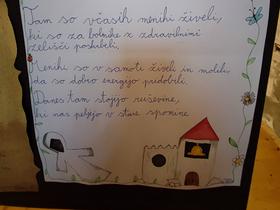 Tam so včasih menihi živeli,
ki so za bolnike z zdravilnimi
zelišči poskrbeli.
Menihi so v samoti živeli in molili,
da so dobro energijo pridobili.
Danes tam stojijo ruševine,
ki nas peljejo v stare spomine.